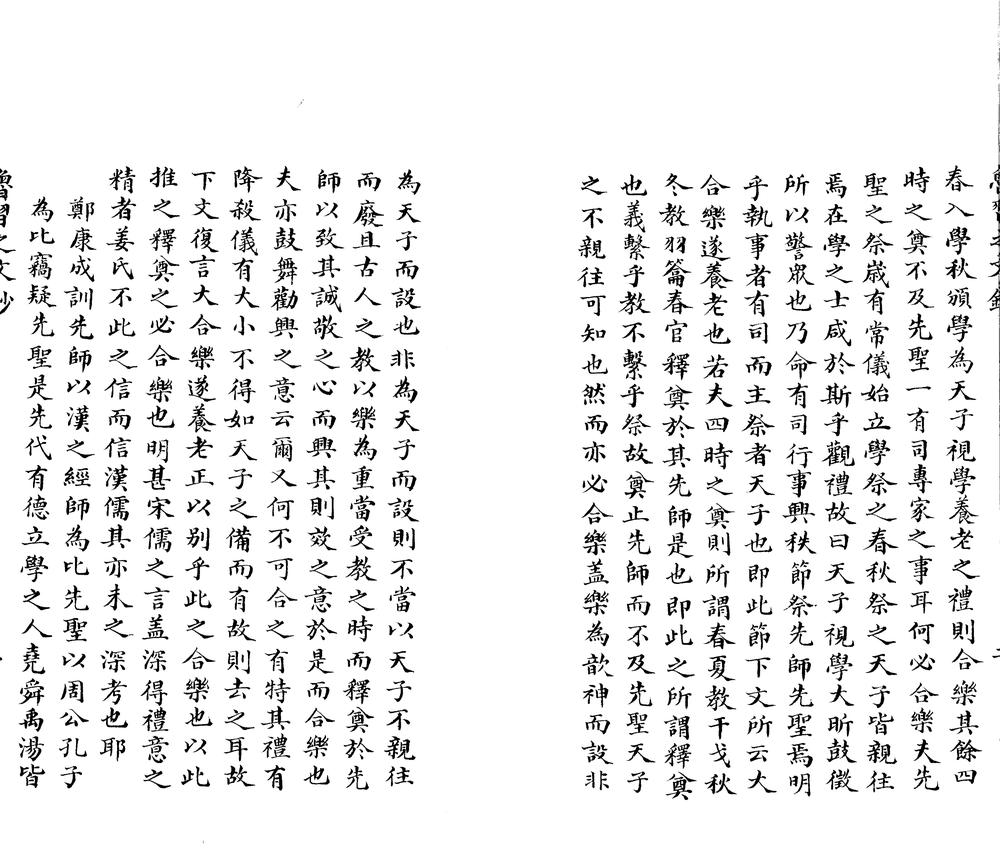 春入學秋頒學為天子視學養老之禮則合樂其餘四
時之奠不及先聖一有司專家之事耳何必合樂夫先
聖之祭嵗有常儀始立學祭之春秋祭之天子皆親往
焉在學之士咸於斯乎觀禮故曰天子視學大昕鼓徴
所以警衆也乃命有司行事興秩節祭先師先聖焉明
乎執事者有司而主祭者天子也即此節下文所云大
合樂遂養老也若夫四時之奠則所謂春夏教干戈秋
冬教羽籥春官釋奠於其先師是也即此之所謂釋奠
也義繫乎教不繫乎祭故奠止先師而不及先聖天子
之不親往可知也然而亦必合樂盖樂為歆神而設非
為天子而設也非為天子而設則不當以天子不親往
而廢且古人之教以樂為重當受教之時而釋奠於先
師以致其誠敬之心而興其則效之意於是而合樂也
夫亦鼓舞勸興之意云爾又何不可合之有特其禮有
降殺儀有大小不得如天子之備而有故則去之耳故
下文復言大合樂遂養老正以别乎此之合樂也以此
推之釋奠之必合樂也明甚宋儒之言盖深得禮意之
精者姜氏不此之信而信漢儒其亦未之深考也耶
鄭康成訓先師以漢之經師為比先聖以周公孔子
為比竊疑先聖是先代有德立學之人堯舜禹湯皆